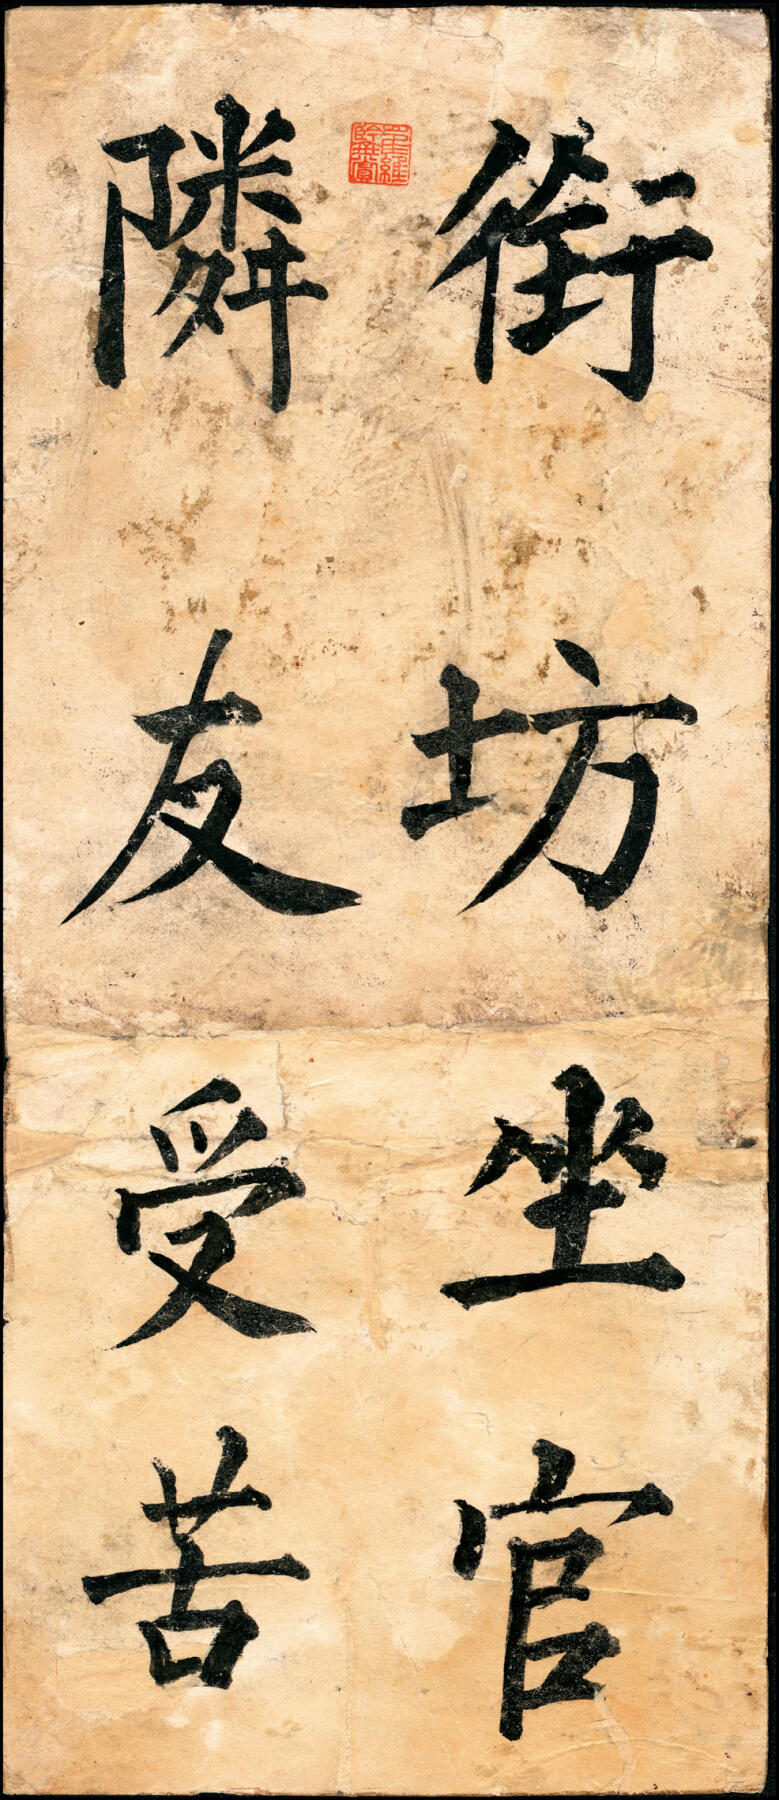 街坊坐官
隣友受苦